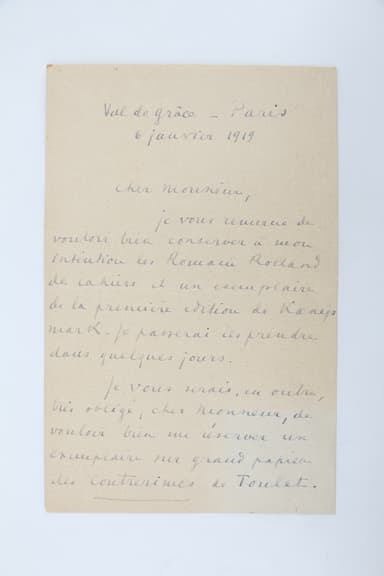 Val de grâce – Paris
6 janvier 1919
cher Monsieur,
je vous remercie de
vouloir bien conserver à mon
intention les Romain Rolland
des cahiers et un exemplaire
de la première édition de Kœnigs
mark. Je passerai les prendre
dans quelques jours.
Je vous serais, en outre,
très obligé, cher Monsieur, de
vouloir bien me réserver un
exemplaire sur grand papier
des contrerimes de Toulet.